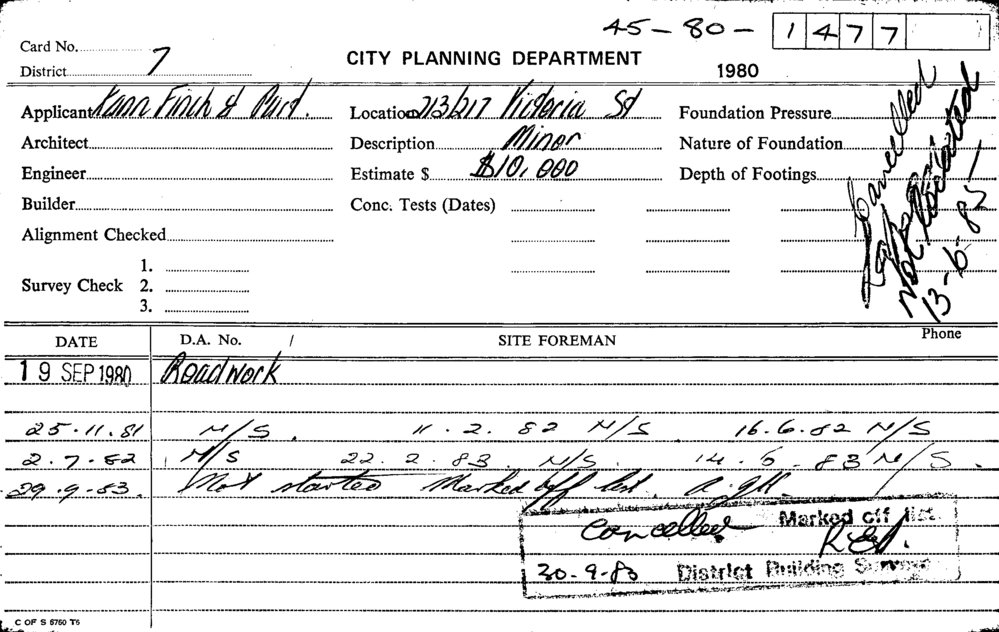 45-80- 1477
Card No. CITY PLANNING DEPARTMENT
District 7 1980
Applicant Kann Finch & Part. Location 213/217 Victoria St Foundation Pressure
Architect Description Minor Nature of Foundation
Engineer Estimate $ $10,000 Depth of Footings
Builder Conc. Tests (Dates)
Alignment Checked
Survey Check 1.
2.
3.
Cancelled
not located
13-6-85
Phone
DATE D.A. No. / SITE FOREMAN
19 SEP 1980 Roadwork
25.11.81 N/S. 11.2.82 N/S 16.6.82 N/S
2.7.82 N/S 22.2.83. N/S. 14.6.83 N/S.
29.9.83. Not started Marked off list.
Cancelled Marked off list.
30-9-83 District Building Surveyor
C OF S 5760 T5